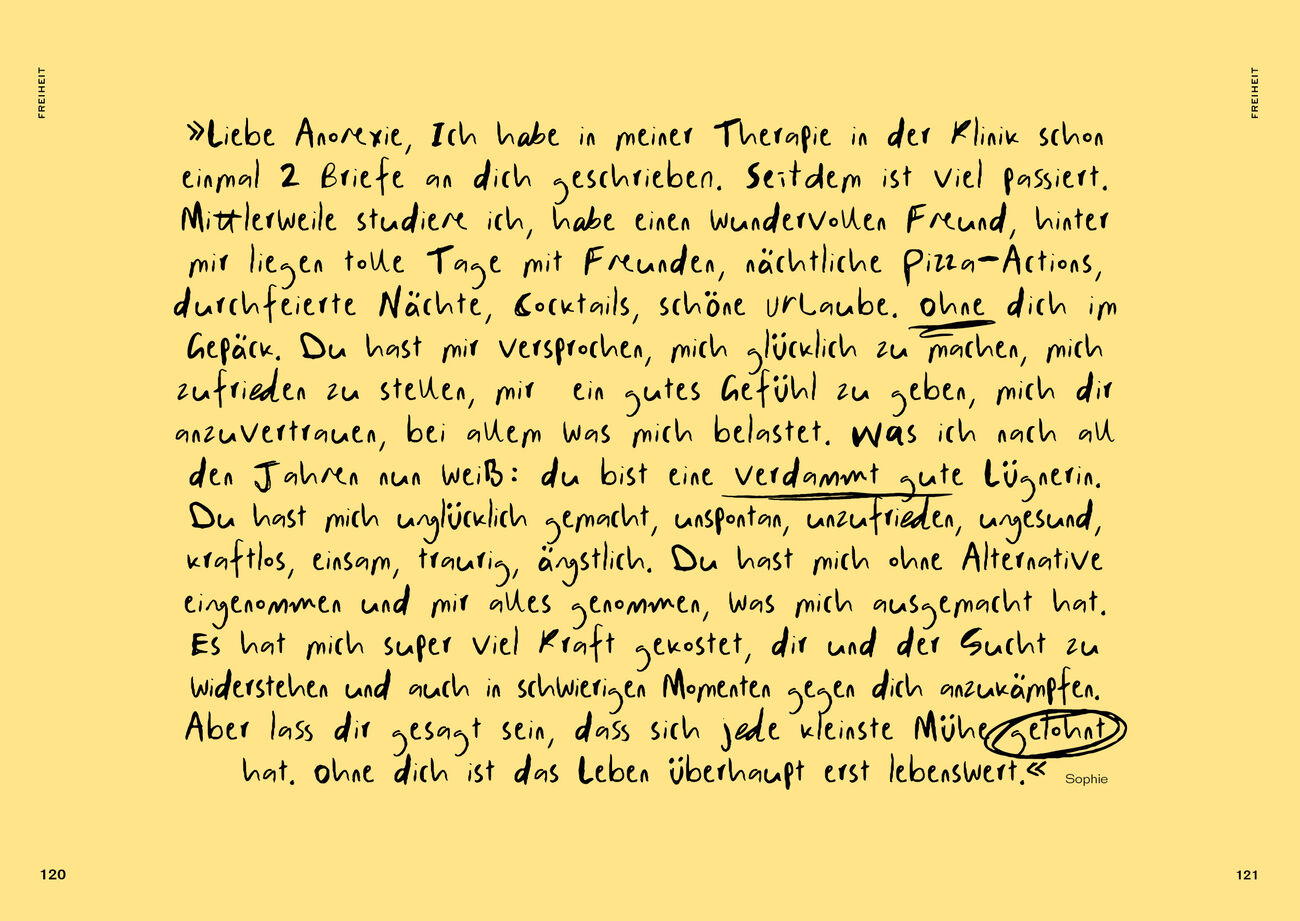 FREIHEIT
FREIHEIT
»Liebe Anorexie, Ich habe in meiner Therapie in der Klinik schon
einmal 2 Briefe an dich geschrieben. Seitdem ist viel passiert.
Mittlerweile studiere ich, habe einen wundervollen Freund, hinter
mir liegen tolle Tage mit Freunden, nächtliche Pizza-Actions,
durchfeierte Nächte, Cocktails, schöne Urlaube. Ohne dich im
Gepäck. Du hast mir versprochen, mich glücklich zu machen, mich
zufrieden zu stellen, mir ein gutes Gefühl zu geben, mich dir
anzuvertrauen, bei allem was mich belastet. Was ich nach all
den Jahren nun weiß: du bist eine verdammt gute Lügnerin.
Du hast mich unglücklich gemacht, unspontan, unzufrieden, ungesund,
kraftlos, einsam, traurig, ängstlich. Du hast mich ohne Alternative
eingenommen und mir alles genommen, was mich ausgemacht hat.
Es hat mich super viel Kraft gekostet, dir und der Sucht zu
widerstehen und auch in schwierigen Momenten gegen dich anzukämpfen.
Aber lass dir gesagt sein, dass sich jede kleinste Mühe gelohnt
hat. Ohne dich ist das Leben überhaupt erst lebenswert.« Sophie
120
121